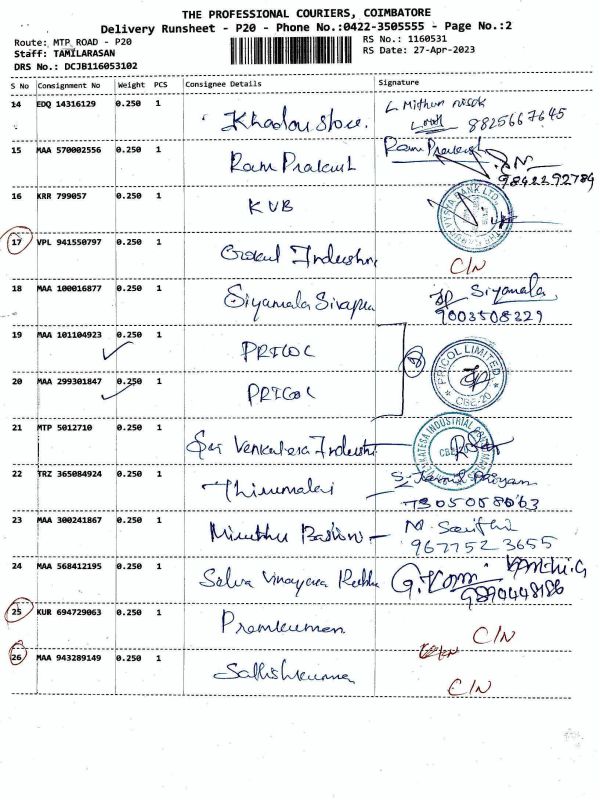 THE PROFESSIONAL COURIERS, COIMBATORE
Delivery Runsheet - P20 - Phone No.:0422-3505555 - Page No.:2
Route: MTP ROAD - P20
RS No.: 1160531
Staff: TAMILARASAN
RS Date: 27-Apr-2023
DRS No.: DCJB116053102
S No Consignment No Weight PCS Consignee Details Signature
14 EDQ 14316129 0.250 1 Khadou store. L Mithun
8825667645
15 MAA 570002556 0.250 1 Ram Prakash Ram Prakash
9842292789
16 KRR 799057 0.250 1 KVB
17 VPL 941550797 0.250 1 Gokul Industri C/N
18 MAA 100016877 0.250 1 Siyamala Sivapra Siyamala
9003508329
19 MAA 101104923 0.250 1 PRICOL
20 MAA 299301847 0.250 1 PRICOL
PRICOL LIMITED
CBE-20
21 MTP 5012710 0.250 1 Sri Venkatesa Industri
22 TRZ 365084924 0.250 1 Thirumalai
7305058063
23 MAA 300241867 0.250 1 Minuthu Bastion M. Sarithi
9677523655
24 MAA 568412195 0.250 1 Selva Vinayaga
9890448186
25 KUR 694729063 0.250 1 Premkumar C/N
26 MAA 943289149 0.250 1 Sathishkumar C/N